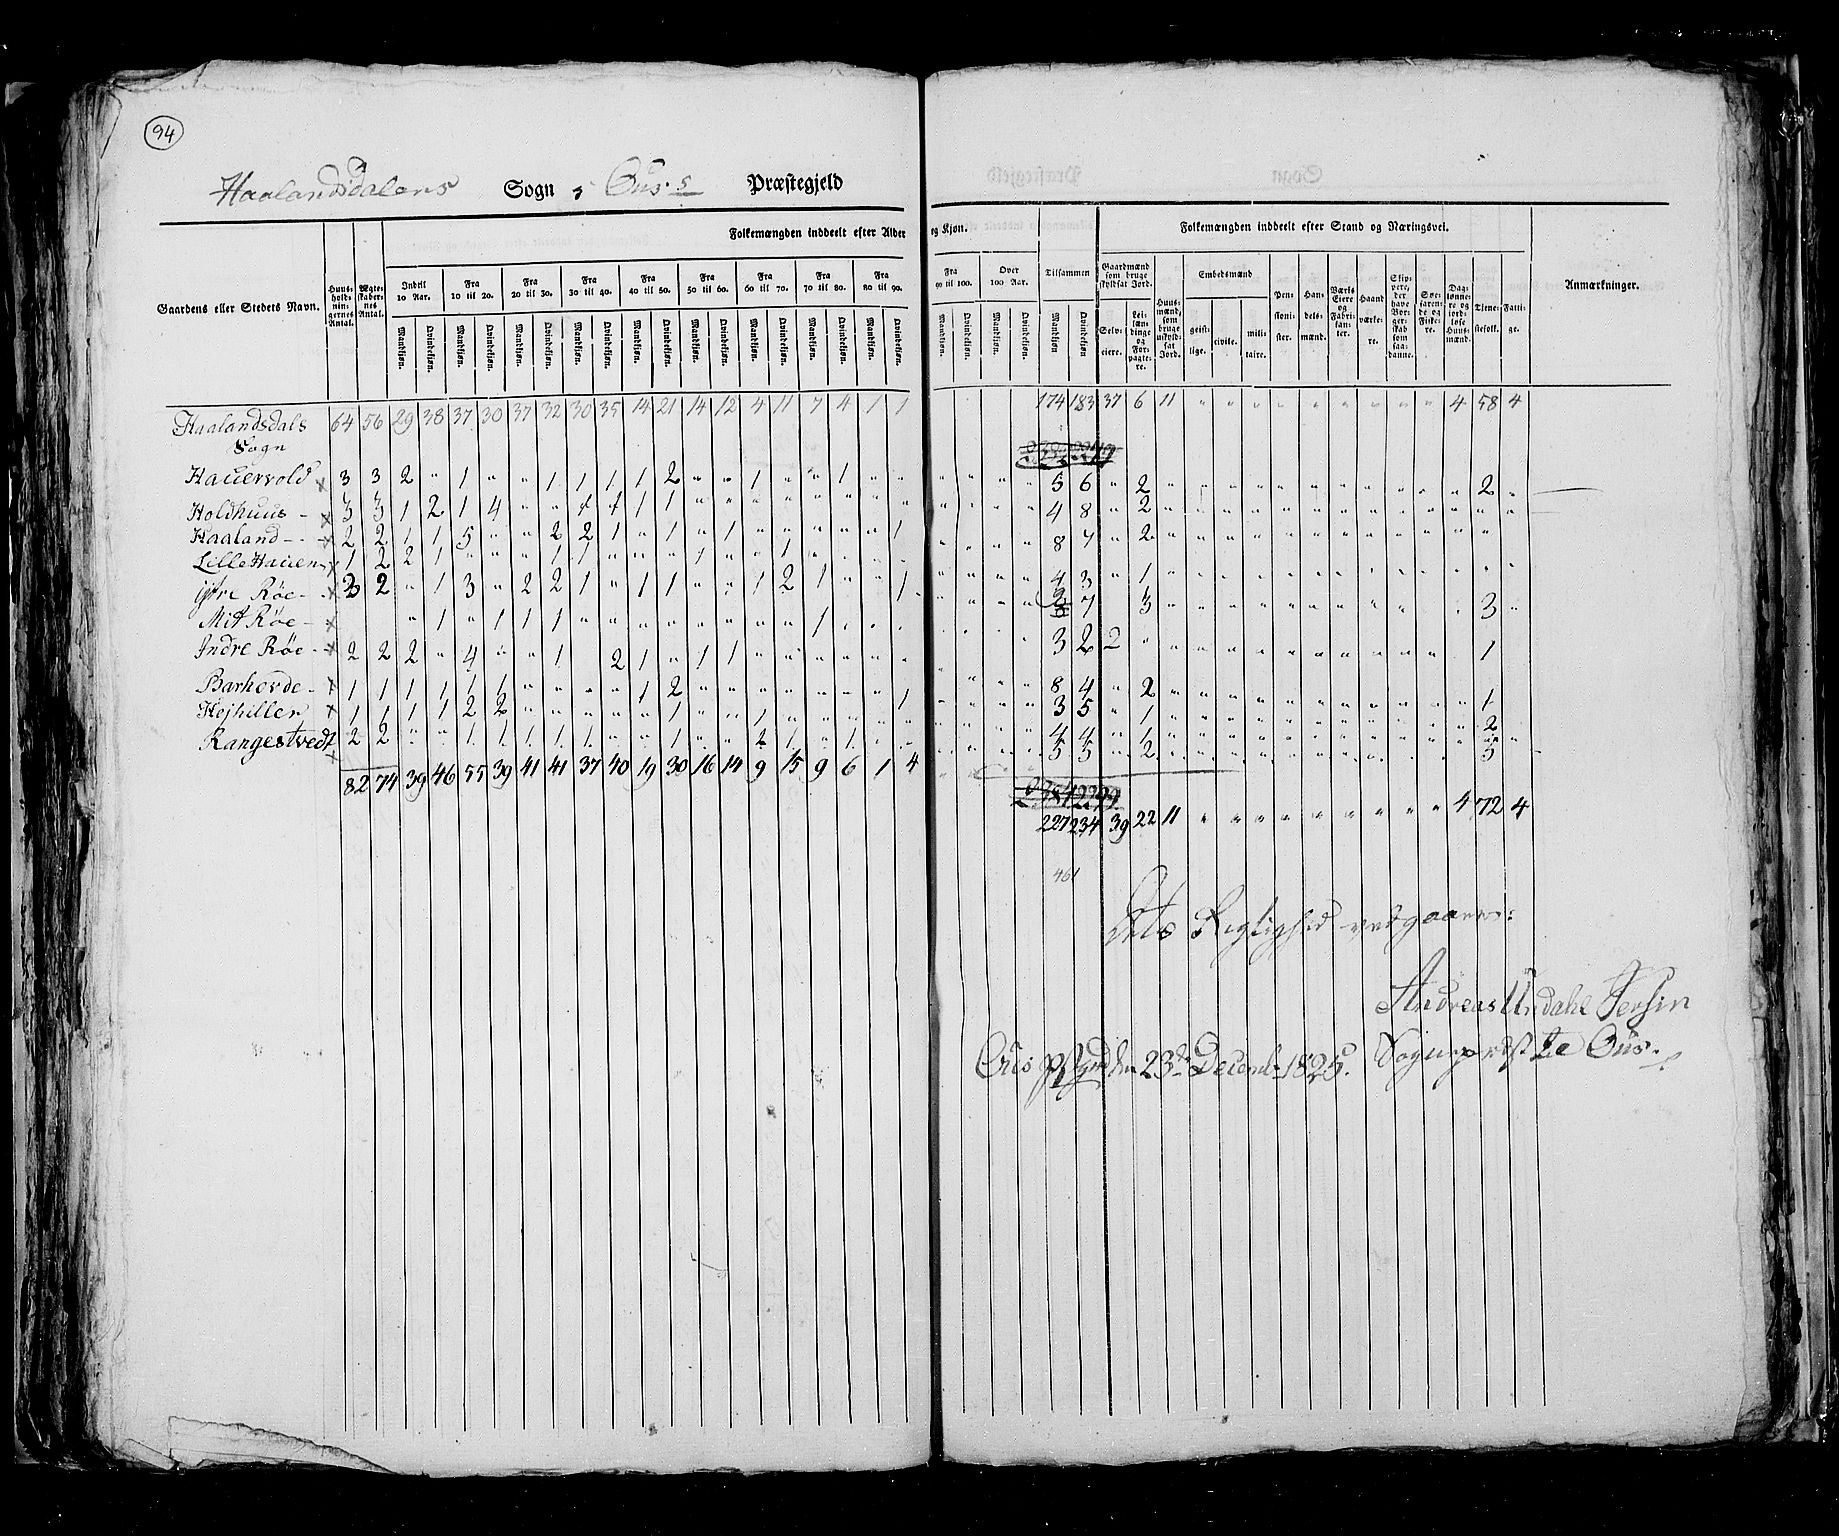 94
Haalandsdalens Sogn, Ous Præstegjeld
Gaardens eller Stedets Navn.
Huusholdningernes Antal.
Ægteskabernes Antal.
Folkemængden inddeelt efter Alder og Kjøn.
Indtil 10 Aar. Fra 10 til 20. Fra 20 til 30. Fra 30 til 40. Fra 40 til 50. Fra 50 til 60. Fra 60 til 70. Fra 70 til 80. Fra 80 til 90. Fra 90 til 100. Over 100 Aar. Tilsammen
Mandkjøn. Qvindekjøn.
Folkemængden inddeelt efter Stand og Næringsvei.
Gaardmænd som bruge skyldsat Jord.
Selveiere. Leilændinge og Forpagtere.
Huusmænd, som bruge uskyldsat Jord.
Embedsmænd
geistlige. civile. militaire.
Pensionister. Handelsmænd. Værks Eiere og Fabrikanter. Haandværkere. Skippere, der have Borgerskab som saadanne. Søefarende og Fiskere. Daglønnere og jordløse Huusmænd. Tienestefolk. Fattige.
Anmærkninger.
Haalandsdals Sogn 64 56 29 38 37 30 37 32 30 35 14 21 14 12 4 11 7 4 1 1 174 183 37 6 11 " " " " " " " " " 4 58 4
Hauervold x 3 3 2 " 1 " " 1 1 1 1 2 " " 1 " " 1 " " 5 6 " 2 2
Holdhuus - x 3 3 1 2 1 4 " " 1 1 1 1 4 8 " 2
Haaland - x 2 2 1 1 5 " " 2 2 1 " 1 " 1 1 8 7 " 2
Lille Hauen x 1 2 2 1 " " " 1 1 " " " 1 " " 1 4 3 " 1
Ytre Røe - x 3 2 " 1 3 " 2 2 1 " 1 1 " " 1 2 1 " " 1 7 3 3
Mit Røe - x " 1 " 1 1 1 1 3 2 2
Indre Røe - x 2 2 2 " 4 " " 1 2 1 " 1 1 8 4 " 2 1
Barhovde - x 1 1 1 1 1 1 " " " " 1 2 3 5 " 1 1
x 1 1 1 1 2 2 " " " " " 1 " " 1 1 4 4 " 1 2
Rangestvedt x 2 2 " " 1 1 1 1 1 " " 1 " " 2 1 " 1 5 5 " 2 3
82 74 39 46 55 39 41 41 37 40 19 30 16 14 9 15 9 6 1 4
227 234 39 22 11 " " " " " " " " " 4 72 4
461
Rigtighed vedgaaer:
Andreas Undahl
Sognepræst te Ous.
Ous Pstgrd den 23de Decemb. 1825.